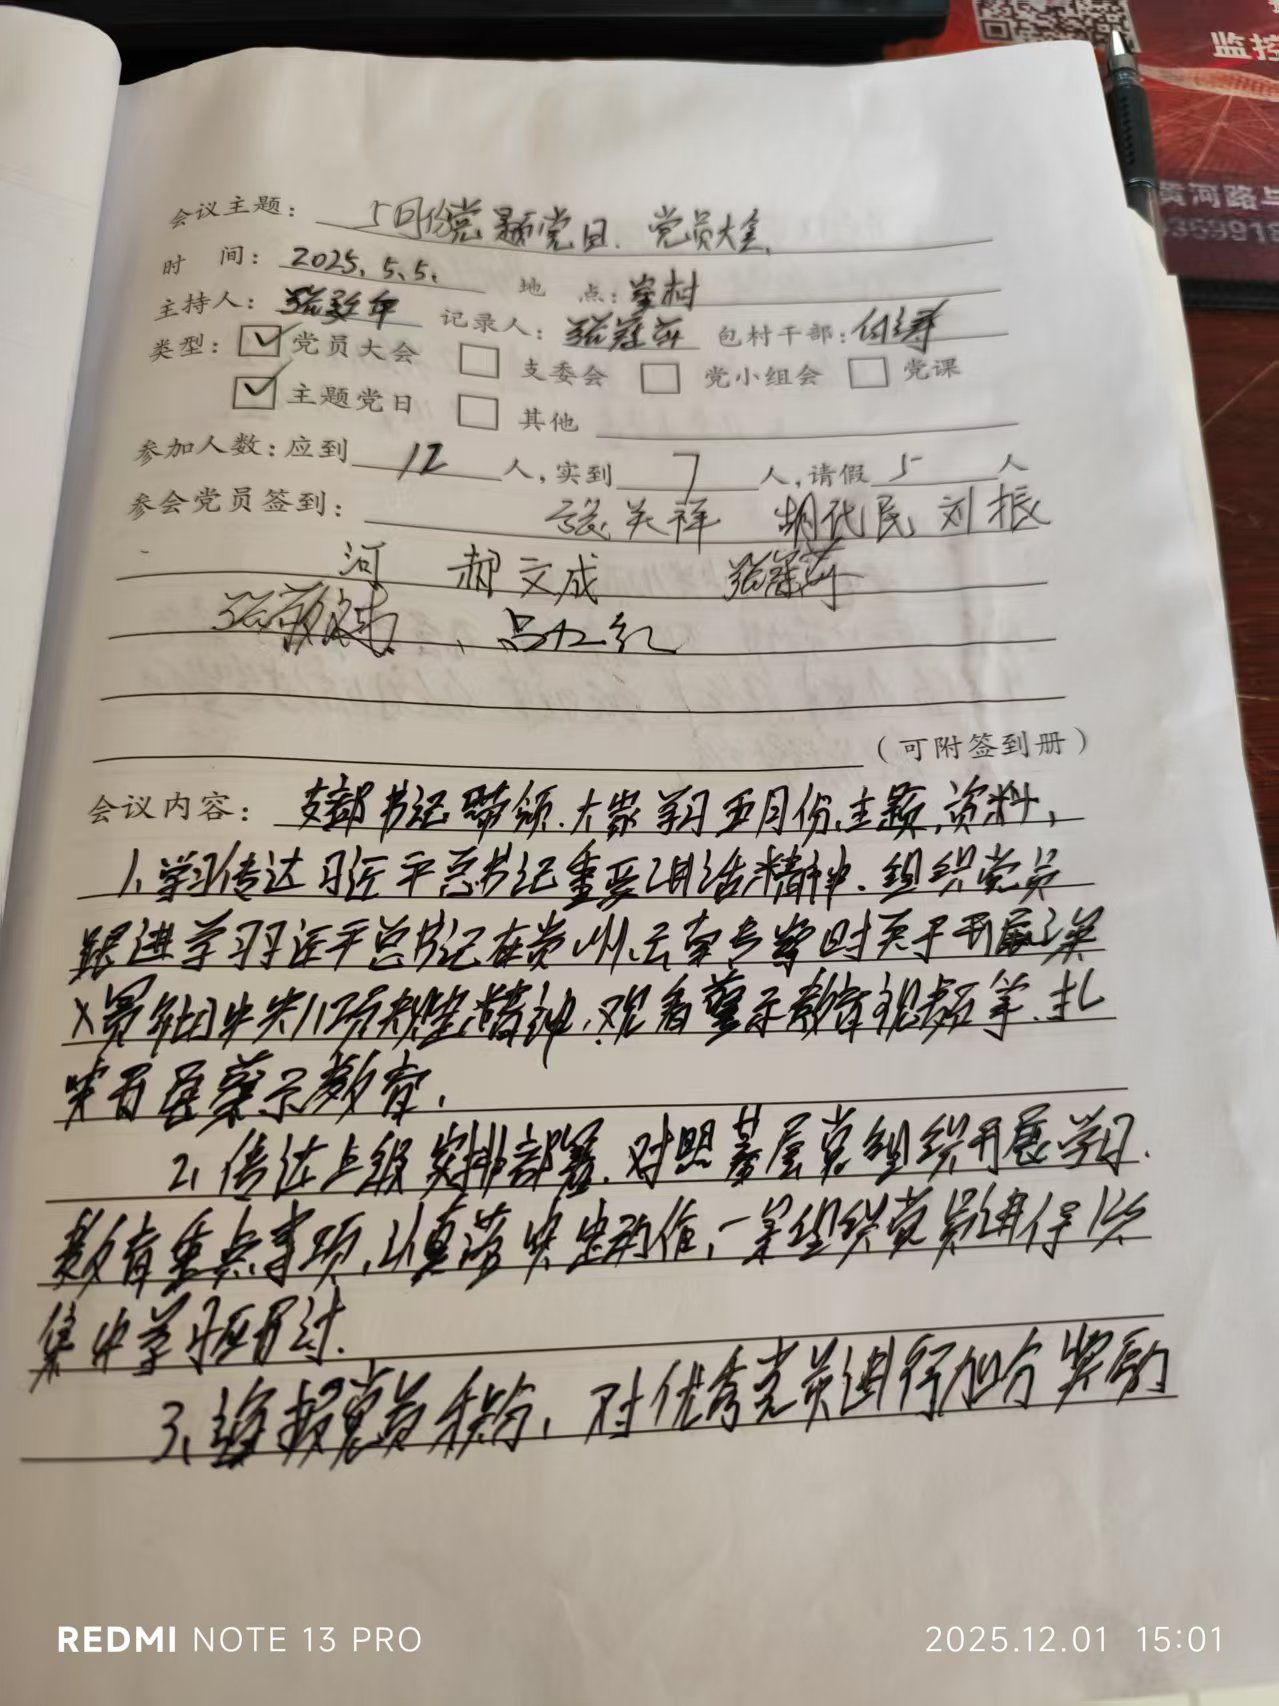 监控
黄河路与
会议主题： 5月份主题党日、党员大会
时 间：2025.5.5. 地 点：
主持人： 记录人： 包村干部：
类型：☑党员大会 □支委会 □党小组会 □党课
☑主题党日 □其他
参加人数：应到 12 人，实到 7 人，请假 5 人
参会党员签到： 张关祥 胡代民 刘振
河 郝文成
吕红
（可附签到册）
会议内容： 支部书记带领大家学习五月份主题资料，
1、学习传达习近平总书记重要讲话精神、组织党员
跟进学习习近平总书记在贵州、云南考察时关于开展深
入贯彻中央八项规定精神、观看警示教育视频等、扎
实开展警示教育.
2、传达上级安排部署、对照基层党组织开展学习
教育重点事项、认真落实 组织党员进行1次
集中学习研讨.
3、通报党员积分、对优秀党员进行加分奖励
REDMI NOTE 13 PRO
2025.12.01 15:01